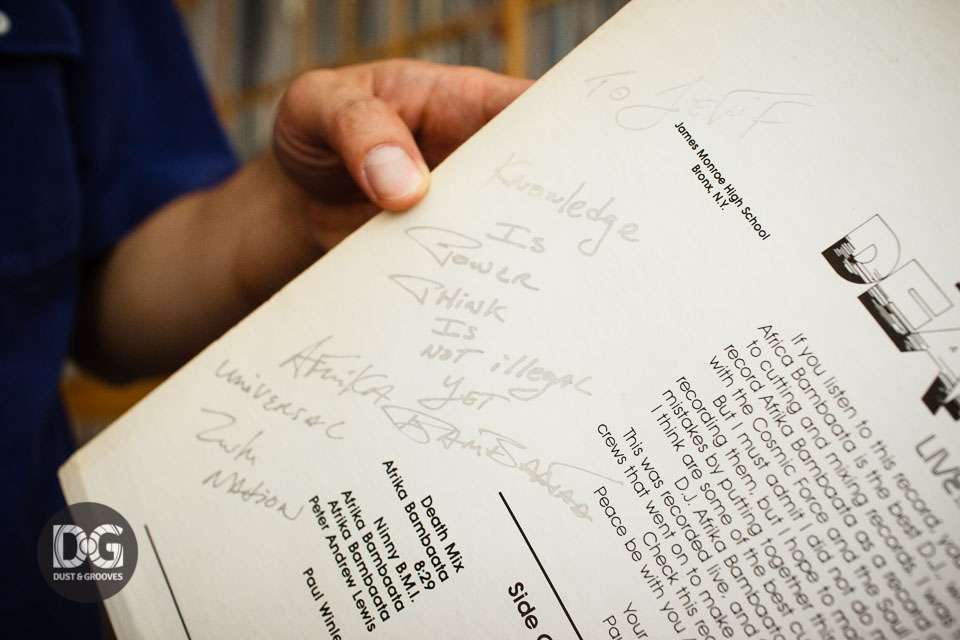 To
Knowledge
Is
Power
Think
Is
Not illegal
yet
Afrika Bambaataa
Universal
Zulu
Nation
James Monroe High School
Bronx, N.Y.
DEA
LIVE
If you listen to this record, you
Africa Bambaata is the best D.J.
to cutting and mixing records. I was
record Afrika Bambaata as a record
with the Cosmic Force and the Soul
But I must admit I did not do
recording them, but I hope to
mistakes by putting together the
I think are some of the best
D.J. Afrika Bambaat
This was recorded live, and
crews that went on to make
Check this re
Peace be with you
Your
Pau
Side
Death Mix
Afrika Bambaata
8:29
Ninny B.M.I.
Afrika Bambaata
Afrika Bambaata
Peter Andrew Lewis
Paul Winle
DG
DUST & GROOVES